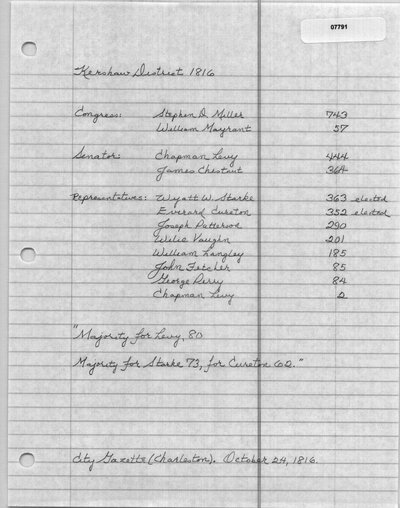 07791
Kershaw District 1816
Congress: Stephen D. Miller 743
William Mayrant 57
Senator: Chapman Levy 444
James Chestnut 364
Representatives: Wyatt W. Starke 363 elected
Everard Cureton 352 elected
Joseph Patterson 290
Welie Vaughn 201
William Langley 185
John Fletcher 85
George Perry 84
Chapman Levy 2
"Majority for Levy, 80
Majority for Starke 73, for Cureton 62."
City Gazette (Charleston). October 24, 1816.